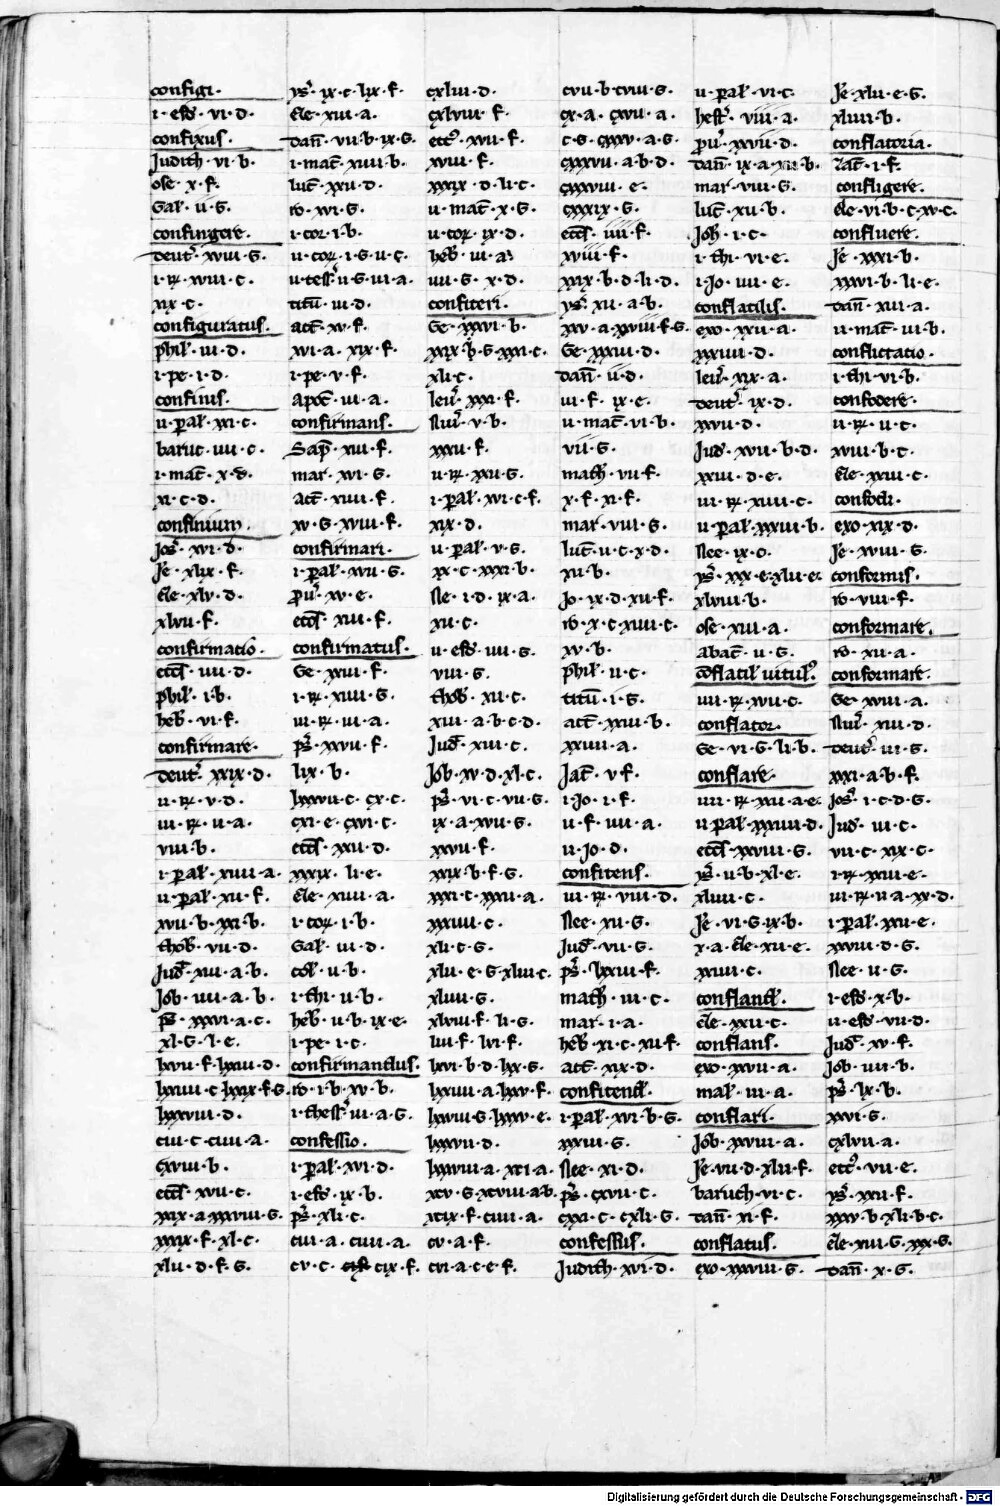 configi.
i. esd. vi. d.
confixus.
Judith. vi. b.
ose. x. f.
Gal. ii. G.
confingere.
deut. xviii. G.
i. R. xviii. c.
xix. c.
configuratus.
phil. iii. d.
i. pe. i. d.
confinis.
ii. pal. xxi. c.
baruc. iiii. c.
i. mac. x. d.
xi. c. d.
confinium.
Jos. xvi. d.
Je. xlix. f.
Ele. xlv. d.
xlvii. f.
confirmatio.
eccl. iiii. d.
phil. i. b.
heb. vi. f.
confirmare.
deut. xxix. d.
ii. R. v. d.
iii. R. ii. a.
viii. b.
i. pal. xiiii. a.
ii. pal. xii. f.
xvii. b. xxi. b.
thob. vii. d.
Jud. xiii. a. b.
Job. iiii. a. b.
ps. xxxvi. a. c.
xl. G. l. e.
lxvii. f. lxxiii. d.
lxxiiii. c. lxxix. f. G.
lxxxviii. d.
ciii. c. ciiii. a.
cxviii. b.
eccl. xvii. c.
xxix. a. xxxviii. G.
xxxix. f. xl. c.
xlii. d. f. G.
ys. ix. c. lix. f.
Ele. xiii. a.
dan. vii. b. ix. G.
i. mac. xiiii. b.
luc. xxii. d.
ro. xvi. G.
i. cor. i. b.
ii. cor. i. G. ii. c.
ii. tess. ii. G. iii. a.
titu. iii. d.
act. xv. f.
xvi. a. xix. f.
i. pe. v. f.
apoc. iii. a.
confirmans.
Sap. xiii. f.
mar. xvi. G.
act. xiiii. f.
xv. G. xviii. f.
confirmari.
i. pal. xvii. G.
pu. xv. e.
eccl. xiii. f.
confirmatus.
Ge. xxiii. f.
i. R. xiiii. G.
iii. R. iii. a.
ps. xxvii. f.
lix. b.
lxxvii. c. cx. c.
cxi. e. cxvi. c.
eccl. xxii. d.
xxxix. li. e.
Ele. xiii. a.
i. cor. i. b.
Gal. iii. d.
col. ii. b.
i. thi. ii. b.
heb. ii. b. ix. e.
i. pe. i. c.
confirmandus.
ro. i. b. xv. b.
i. thess. iii. a. G.
confessio.
i. pal. xvi. d.
i. esd. ix. b.
ps. xli. c.
ciii. a. ciiii. a.
cv. c. cix. f.
cxliii. d.
cxlviii. f.
ecc. xvii. f.
xviii. f.
xxxix. d. li. c.
ii. mac. x. G.
ii. cor. ix. d.
heb. iii. a.
iiii. G. x. d.
confiteri.
Ge. xxxvi. b.
xxix. b. G. xxxi. c.
xli. c.
leui. xxxi. f.
Nu. v. b.
xxxii. f.
ii. R. xxii. G.
i. pal. xvi. c. f.
xix. d.
ii. pal. v. G.
xx. c. xxxi. b.
Ne. i. d. ix. a.
xii. c.
ii. esd. iiii. G.
viii. G.
thob. xii. c.
xiii. a. b. c. d.
Jud. xiii. c.
Job. xv. d. xl. c.
ps. vi. c. vii. G.
ix. a. xvii. G.
xxvii. f.
xxix. b. f. G.
xxxi. c. xxxii. a.
xxxiiii. c.
xli. c. G.
xlii. e. G. xliii. c.
xliiii. G.
xlviii. f. li. G.
liii. f. lvi. f.
lxvi. b. d. lx. G.
lxxiiii. a. lxxv. f.
lxxvii. G. lxxxv. e.
lxxxvii. d.
lxxxviii. a. xci. a.
xcv. G. xcviii. a. b.
xcix. f. ciiii. a.
cv. a. f.
cvi. a. c. e. f.
cvii. b. cviii. G.
cx. a. cxvii. a.
c. G. cxxv. a. G.
cxxxvii. a. b. d.
cxxxviii. e.
cxxxix. G.
eccl. iiii. f.
xviii. f.
xxix. b. d. li. d.
ys. xii. a. b.
xxv. a. xxviii. f. G.
Ge. xxxiii. d.
dan. ii. d.
iii. f. ix. e.
ii. mac. vi. b.
vii. G.
math. vii. f.
x. f. xi. f.
mar. viii. G.
luc. ii. c. x. d.
xii. b.
Jo. ix. d. xii. f.
ro. x. c. xiiii. c.
xv. b.
phil. ii. c.
titu. i. G.
act. xxiii. b.
xxiiii. a.
Jac. v. f.
i. Jo. i. f.
ii. f. iiii. a.
ii. Jo. d.
confitens.
iii. R. viii. d.
Nee. xii. G.
Jud. vii. G.
ps. lxxiii. f.
math. iii. c.
mar. i. a.
heb. xi. c. xii. f.
act. xix. d.
confitend.
i. pal. xvi. b. G.
xxxiii. G.
Nee. xi. d.
ps. cxvii. c.
cxxi. c. cxli. G.
confessus.
Judith. xvi. d.
ii. pal. vi. c.
hest. viii. a.
pu. xxvii. d.
dan. ix. a. xii. b.
mar. viii. G.
luc. xii. b.
Joh. i. c.
i. thi. vi. e.
i. Jo. iiii. e.
conflatilis.
exo. xxii. a.
xxxiiii. d.
leui. xix. a.
deut. ix. d.
xxvii. d.
Jud. xvii. b. d.
xxiii. d. e.
iii. R. xiiii. c.
ii. pal. xxxiii. b.
Nee. ix. c.
ys. xxx. e. xlii. e.
xlviii. b.
ose. xiii. a.
abac. ii. G.
conflatil uitul.
iiii. R. xvii. c.
conflator.
Ge. vi. G. li. b.
conflare.
iiii. R. xxii. a. e.
ii. pal. xxxiiii. d.
eccl. xxviii. G.
ys. ii. b. xl. e.
xliiii. c.
Je. vi. G. ix. b.
x. a. Ele. xii. e.
xxiiii. c.
confland.
Ele. xxii. c.
conflans.
exo. xxvii. a.
mal. iii. a.
conflari.
Job. xxviii. a.
Je. vii. d. xlii. f.
baruch. vi. c.
dan. xi. f.
conflatus.
exo. xxxviii. G.
Je. xlii. e. G.
xliiii. b.
conflatoria.
zac. i. f.
confligere.
Ele. vi. b. c. xv. c.
confluere.
Je. xxxi. b.
xxxvi. b. li. e.
dan. xii. a.
ii. mac. iii. b.
conflictatio.
i. thi. vi. b.
confodere.
ii. R. ii. c.
xviii. b. c.
Ele. xxiii. c.
confoti.
exo. xix. d.
Je. xviii. G.
conformis.
ro. viii. f.
conformare.
ro. xii. a.
confortare.
Ge. xviii. a.
Nu. xiii. d.
deut. iii. G.
xxxi. a. b. f.
Jos. i. c. d. G.
Jud. iii. c.
vii. c. xix. c.
i. R. xxiii. e.
iii. R. ii. a. xx. d.
i. pal. xxii. e.
xxviii. d. G.
Nee. ii. G.
i. esd. x. b.
ii. esd. vii. d.
Jud. xv. f.
Job. iiii. b.
ps. ix. b.
xxvi. G.
cxlvii. a.
ecc. vii. e.
ys. xxii. f.
xxxv. b. xli. b. c.
Ele. xiii. G. xxx. G.
dan. x. G.
Digitalisierung gefördert durch die Deutsche Forschungsgemeinschaft - DFG